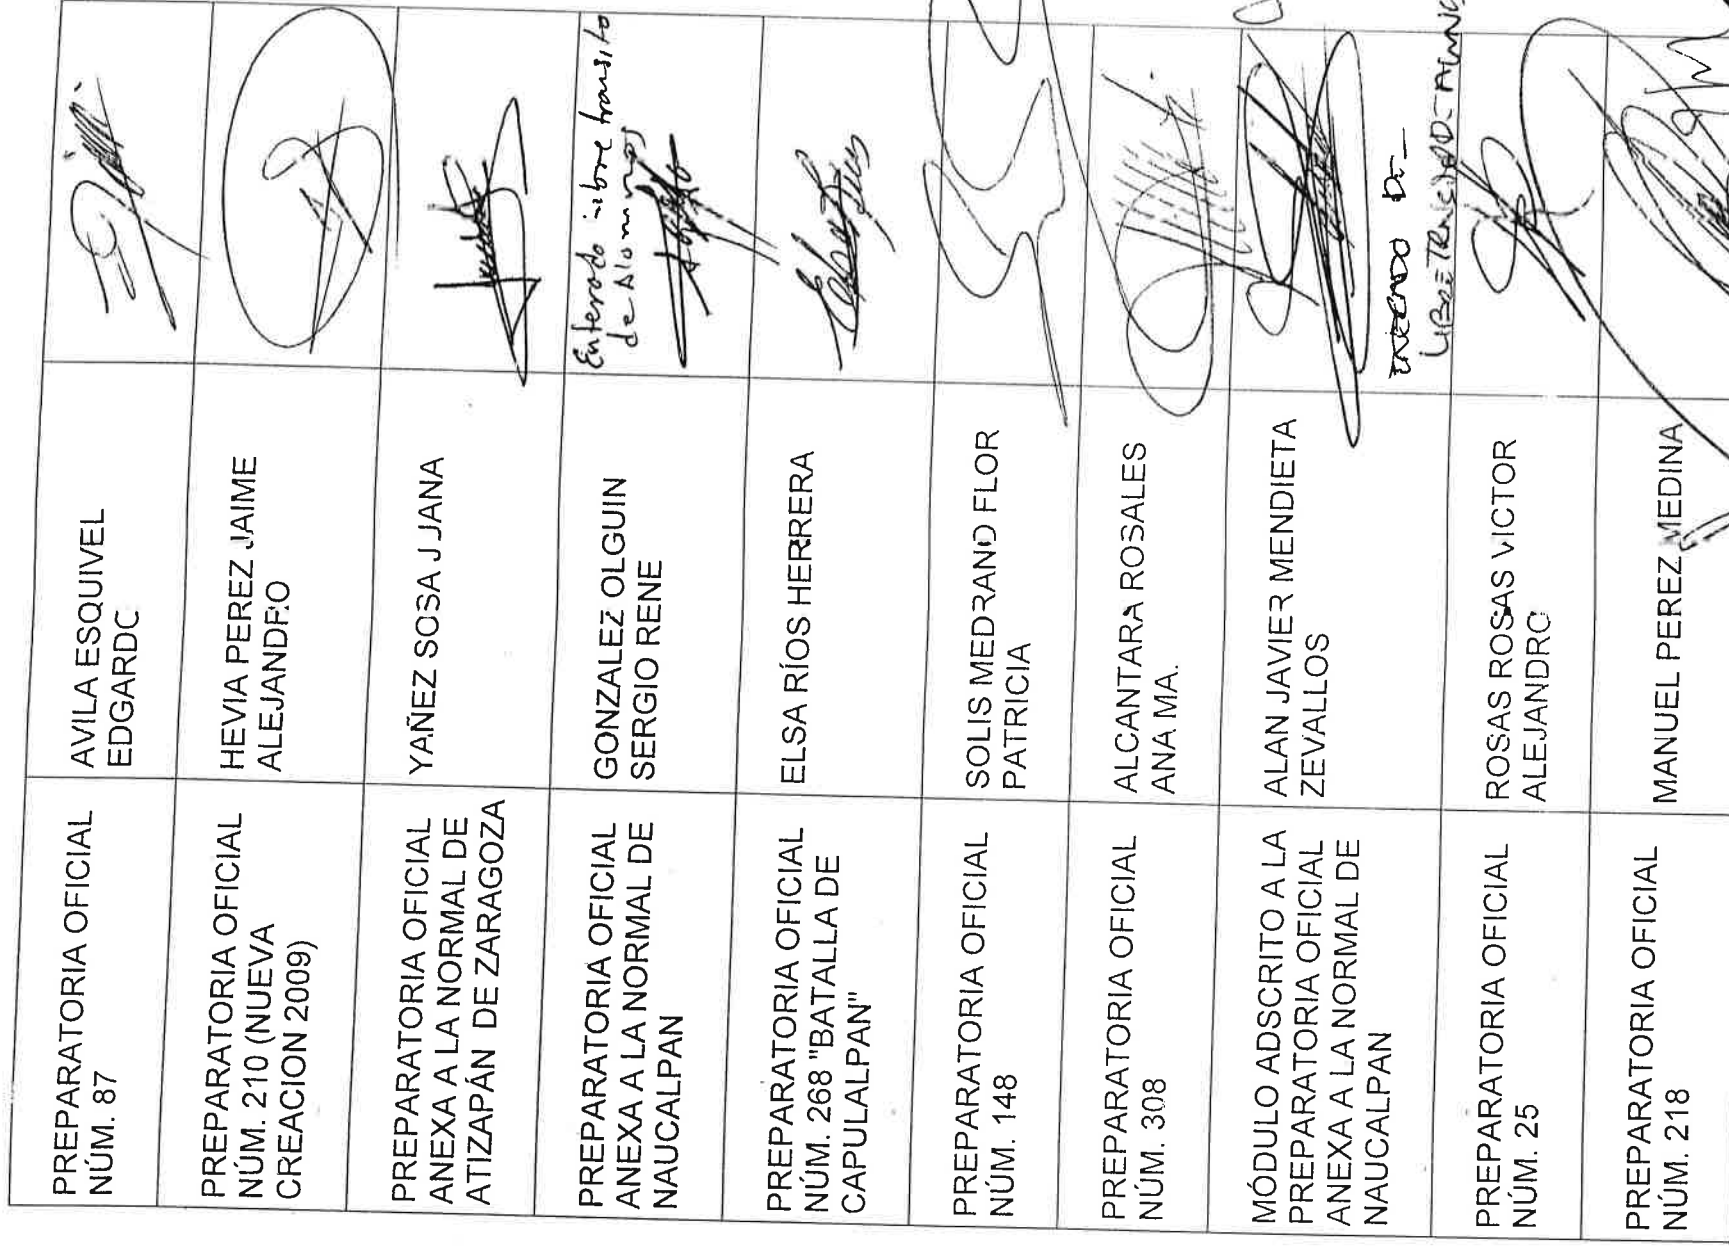 PREPARATORIA OFICIAL
NÚM. 87
AVILA ESQUIVEL
EDGARDC
PREPARATORIA OFICIAL
NÚM. 210 (NUEVA
CREACION 2009)
HEVIA PEREZ JAIME
ALEJANDRO
PREPARATORIA OFICIAL
ANEXA A LA NORMAL DE
ATIZAPÁN DE ZARAGOZA
YAÑEZ SOSA J JANA
PREPARATORIA OFICIAL
ANEXA A LA NORMAL DE
NAUCALPAN
GONZALEZ OLGUIN
SERGIO RENE
Enterado libre transito
de Alumnos
PREPARATORIA OFICIAL
NÚM. 268 "BATALLA DE
CAPULALPAN"
ELSA RÍOS HERRERA
PREPARATORIA OFICIAL
NÚM. 148
SOLIS MEDRANO FLOR
PATRICIA
PREPARATORIA OFICIAL
NÚM. 308
ALCANTARA ROSALES
ANA MA.
MÓDULO ADSCRITO A LA
PREPARATORIA OFICIAL
ANEXA A LA NORMAL DE
NAUCALPAN
ALAN JAVIER MENDIETA
ZEVALLOS
PREPARATORIA OFICIAL
NÚM. 25
ROSAS ROSAS VICTOR
ALEJANDRO
PREPARATORIA OFICIAL
NÚM. 218
MANUEL PEREZ MEDINA